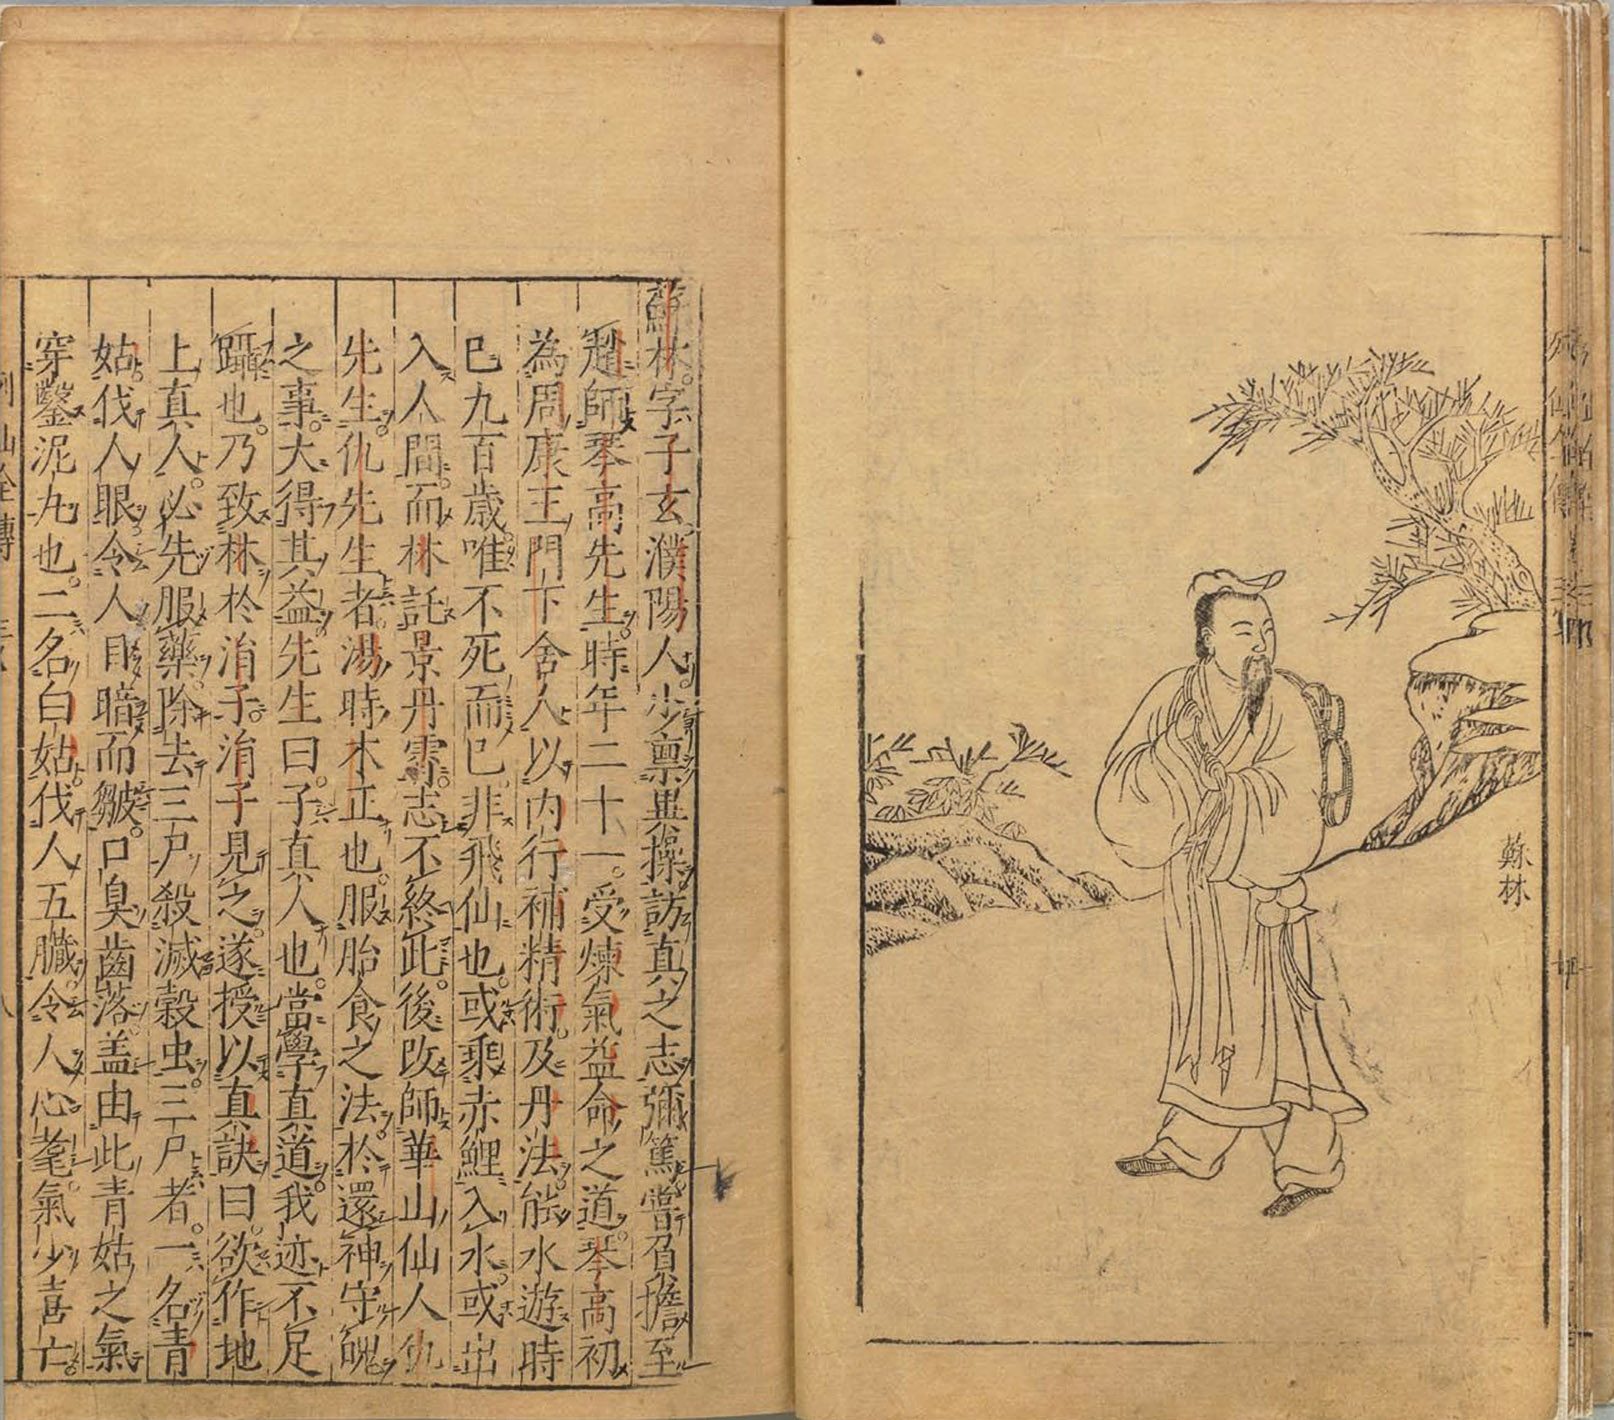 蘇林
蘇林字子玄濮陽人少稟異操訪真之志彌篤嘗負擔至
趙師琴高先生時年二十一受煉氣益命之道琴高初
為周康王門下舍人以内行補精術及丹法能水遊時
已九百歲唯不死而已非飛仙也或乘赤鯉入水或出
入人間而林託景丹霄志不終此後改師華山仙人仇
先生仇先生者湯時木正也服胎食之法於還神守魄
之事大得其益先生曰子真人也當學真道我迹不足
躡也乃致林於涓子涓子見之遂授以真訣曰欲作地
上真人必先服藥除去三尸殺滅穀虫三尸者一名青
姑伐人眼令人目暗而皺口臭齒落盖由此青姑之氣
穿鑿泥丸也二名白姑伐人五臟令人心耄氣少喜亡